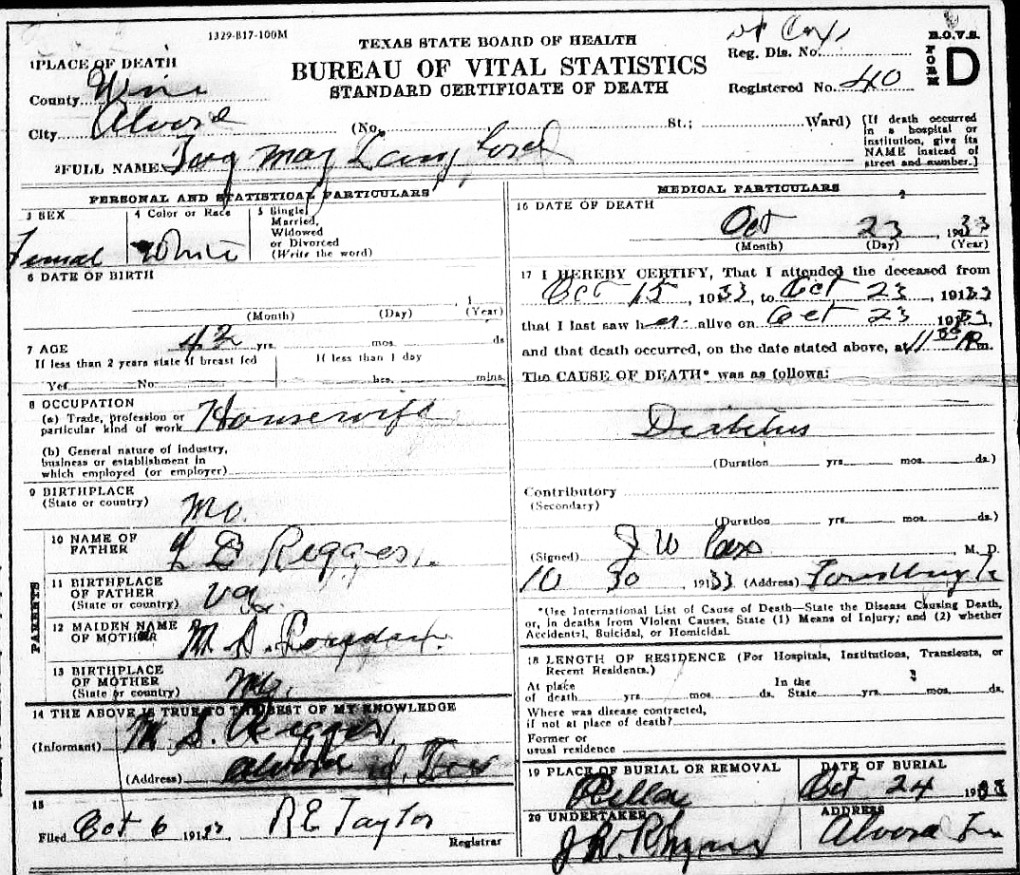 1329-817-100M
TEXAS STATE BOARD OF HEALTH
BUREAU OF VITAL STATISTICS
STANDARD CERTIFICATE OF DEATH
Reg. Dis. No.
Registered No. 40
B.O.V.S.
FORM D
1 PLACE OF DEATH
County Wise
City Alvord (No. St.; Ward)
(If death occurred in a hospital or institution, give its NAME instead of street and number.)
2 FULL NAME May Langford
PERSONAL AND STATISTICAL PARTICULARS
3 SEX
Femal
4 Color or Race
White
5 Single, Married, Widowed or Divorced (Write the word)
6 DATE OF BIRTH
, 1
(Month) (Day) (Year)
7 AGE 42 yrs. mos. ds
If less than 2 years state if breast fed
Yes No.
If less than 1 day
hrs. mins.
8 OCCUPATION
(a) Trade, profession or particular kind of work Housewife
(b) General nature of industry, business or establishment in which employed (or employer)
9 BIRTHPLACE
(State or country) Mo.
PARENTS
10 NAME OF FATHER
11 BIRTHPLACE OF FATHER
(State or country) Va.
12 MAIDEN NAME OF MOTHER M
13 BIRTHPLACE OF MOTHER
(State or country) Mo.
14 THE ABOVE IS TRUE TO THE BEST OF MY KNOWLEDGE
(Informant) M S.
(Address) Alvord
15
Filed Oct 6 191 R E Taylor
Registrar
MEDICAL PARTICULARS
16 DATE OF DEATH
Oct 23, 1933
(Month) (Day) (Year)
17 I HEREBY CERTIFY, That I attended the deceased from
Oct 15, 1933, to Oct 23, 1933
that I last saw her alive on Oct 23 1933,
and that death occurred, on the date stated above, at 11 m.
The CAUSE OF DEATH* was as follows:
(Duration yrs. mos. ds.)
Contributory
(Secondary)
(Duration yrs. mos. ds.)
(Signed) J W , M. D.
10 30, 1933 (Address)
*Use International List of Cause of Death—State the Disease Causing Death,
or, in deaths from Violent Causes, State (1) Means of Injury; and (2) whether
Accidental, Suicidal, or Homicidal.
18 LENGTH OF RESIDENCE (For Hospitals, Institutions, Transients, or
Recent Residents.)
At place of death yrs. mos. ds. In the State yrs. mos. ds.
Where was disease contracted,
if not at place of death?
Former or
usual residence
19 PLACE OF BURIAL OR REMOVAL
DATE OF BURIAL
Oct 24 1933
20 UNDERTAKER
J W.
ADDRESS
Alvord